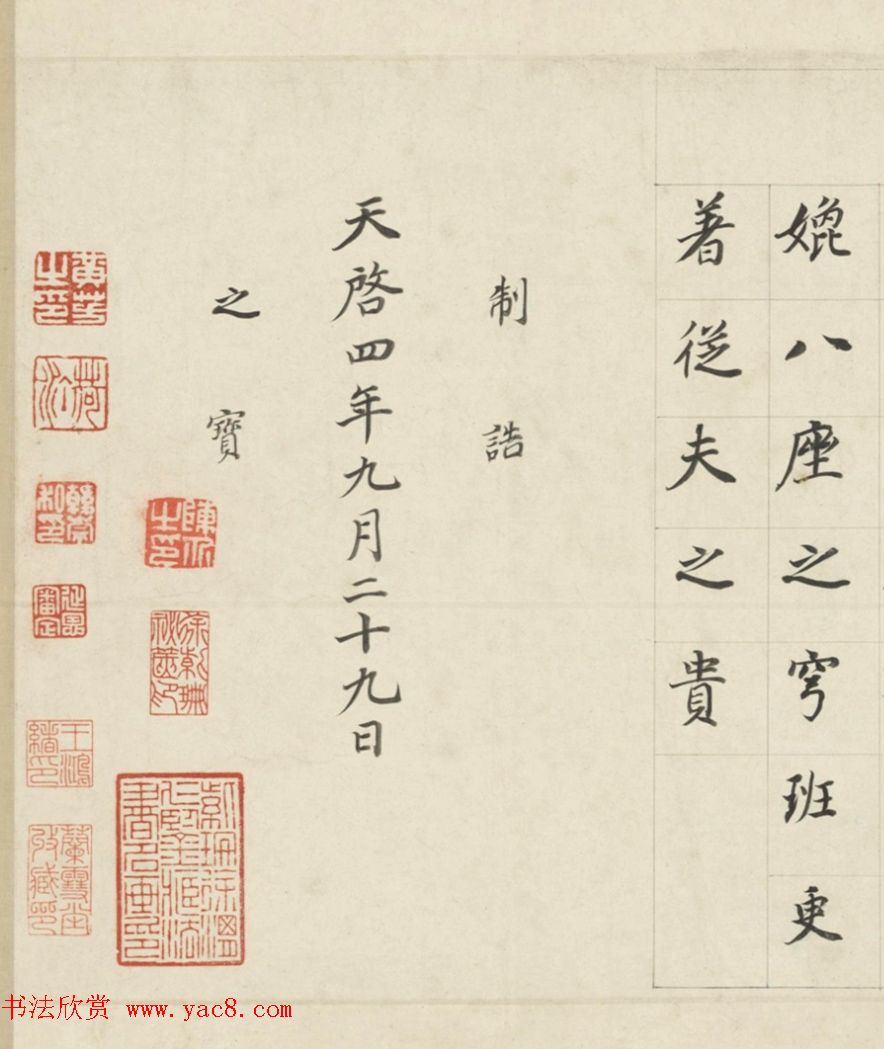 媲八座之穹班更
著從夫之貴
制誥
天啓四年九月二十九日
之寶
王鴻緒印
书法欣赏 www.yac8.com